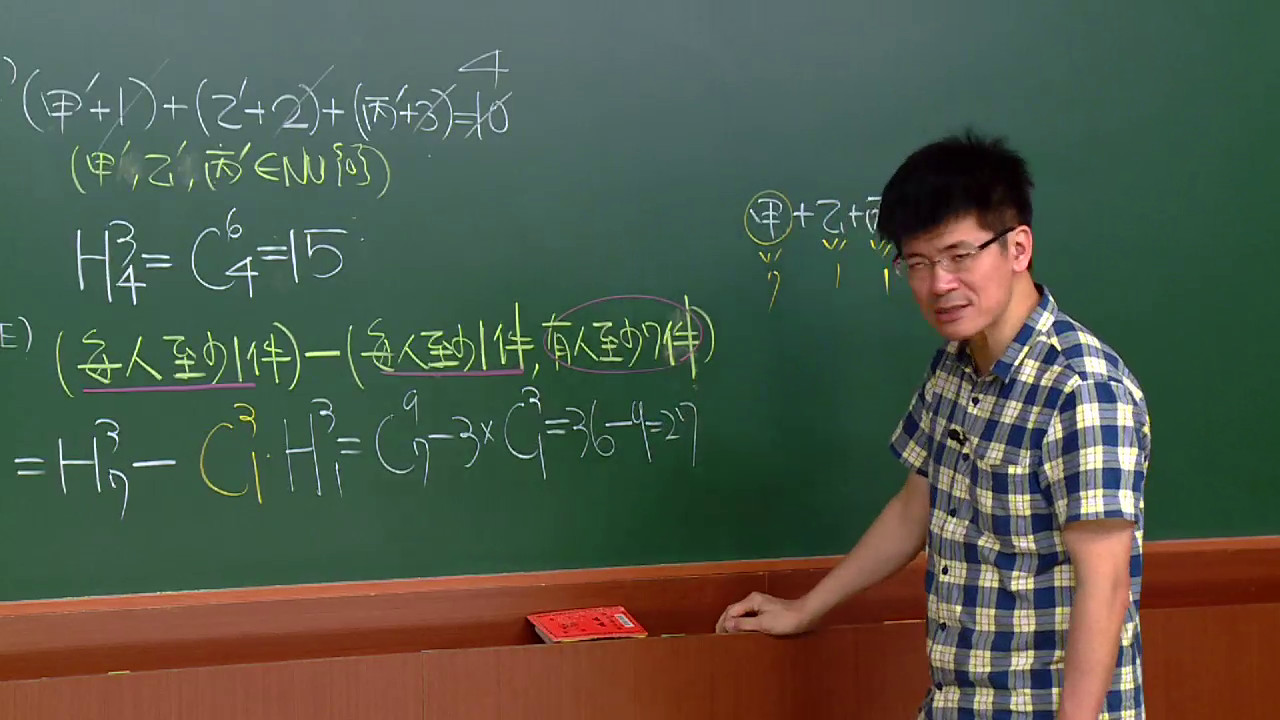 (甲'+1)+(乙'+2)+(丙'+3)=10
4
(甲',乙',丙'∈N∪{0})
H³₄=C⁶₄=15
(每人至少1件)-(每人至少1件,有人至少7件)
=H³₇-C³₁·H³₁=C⁹₇-3×C³₁=36-9=27
甲+乙+
7 1 1